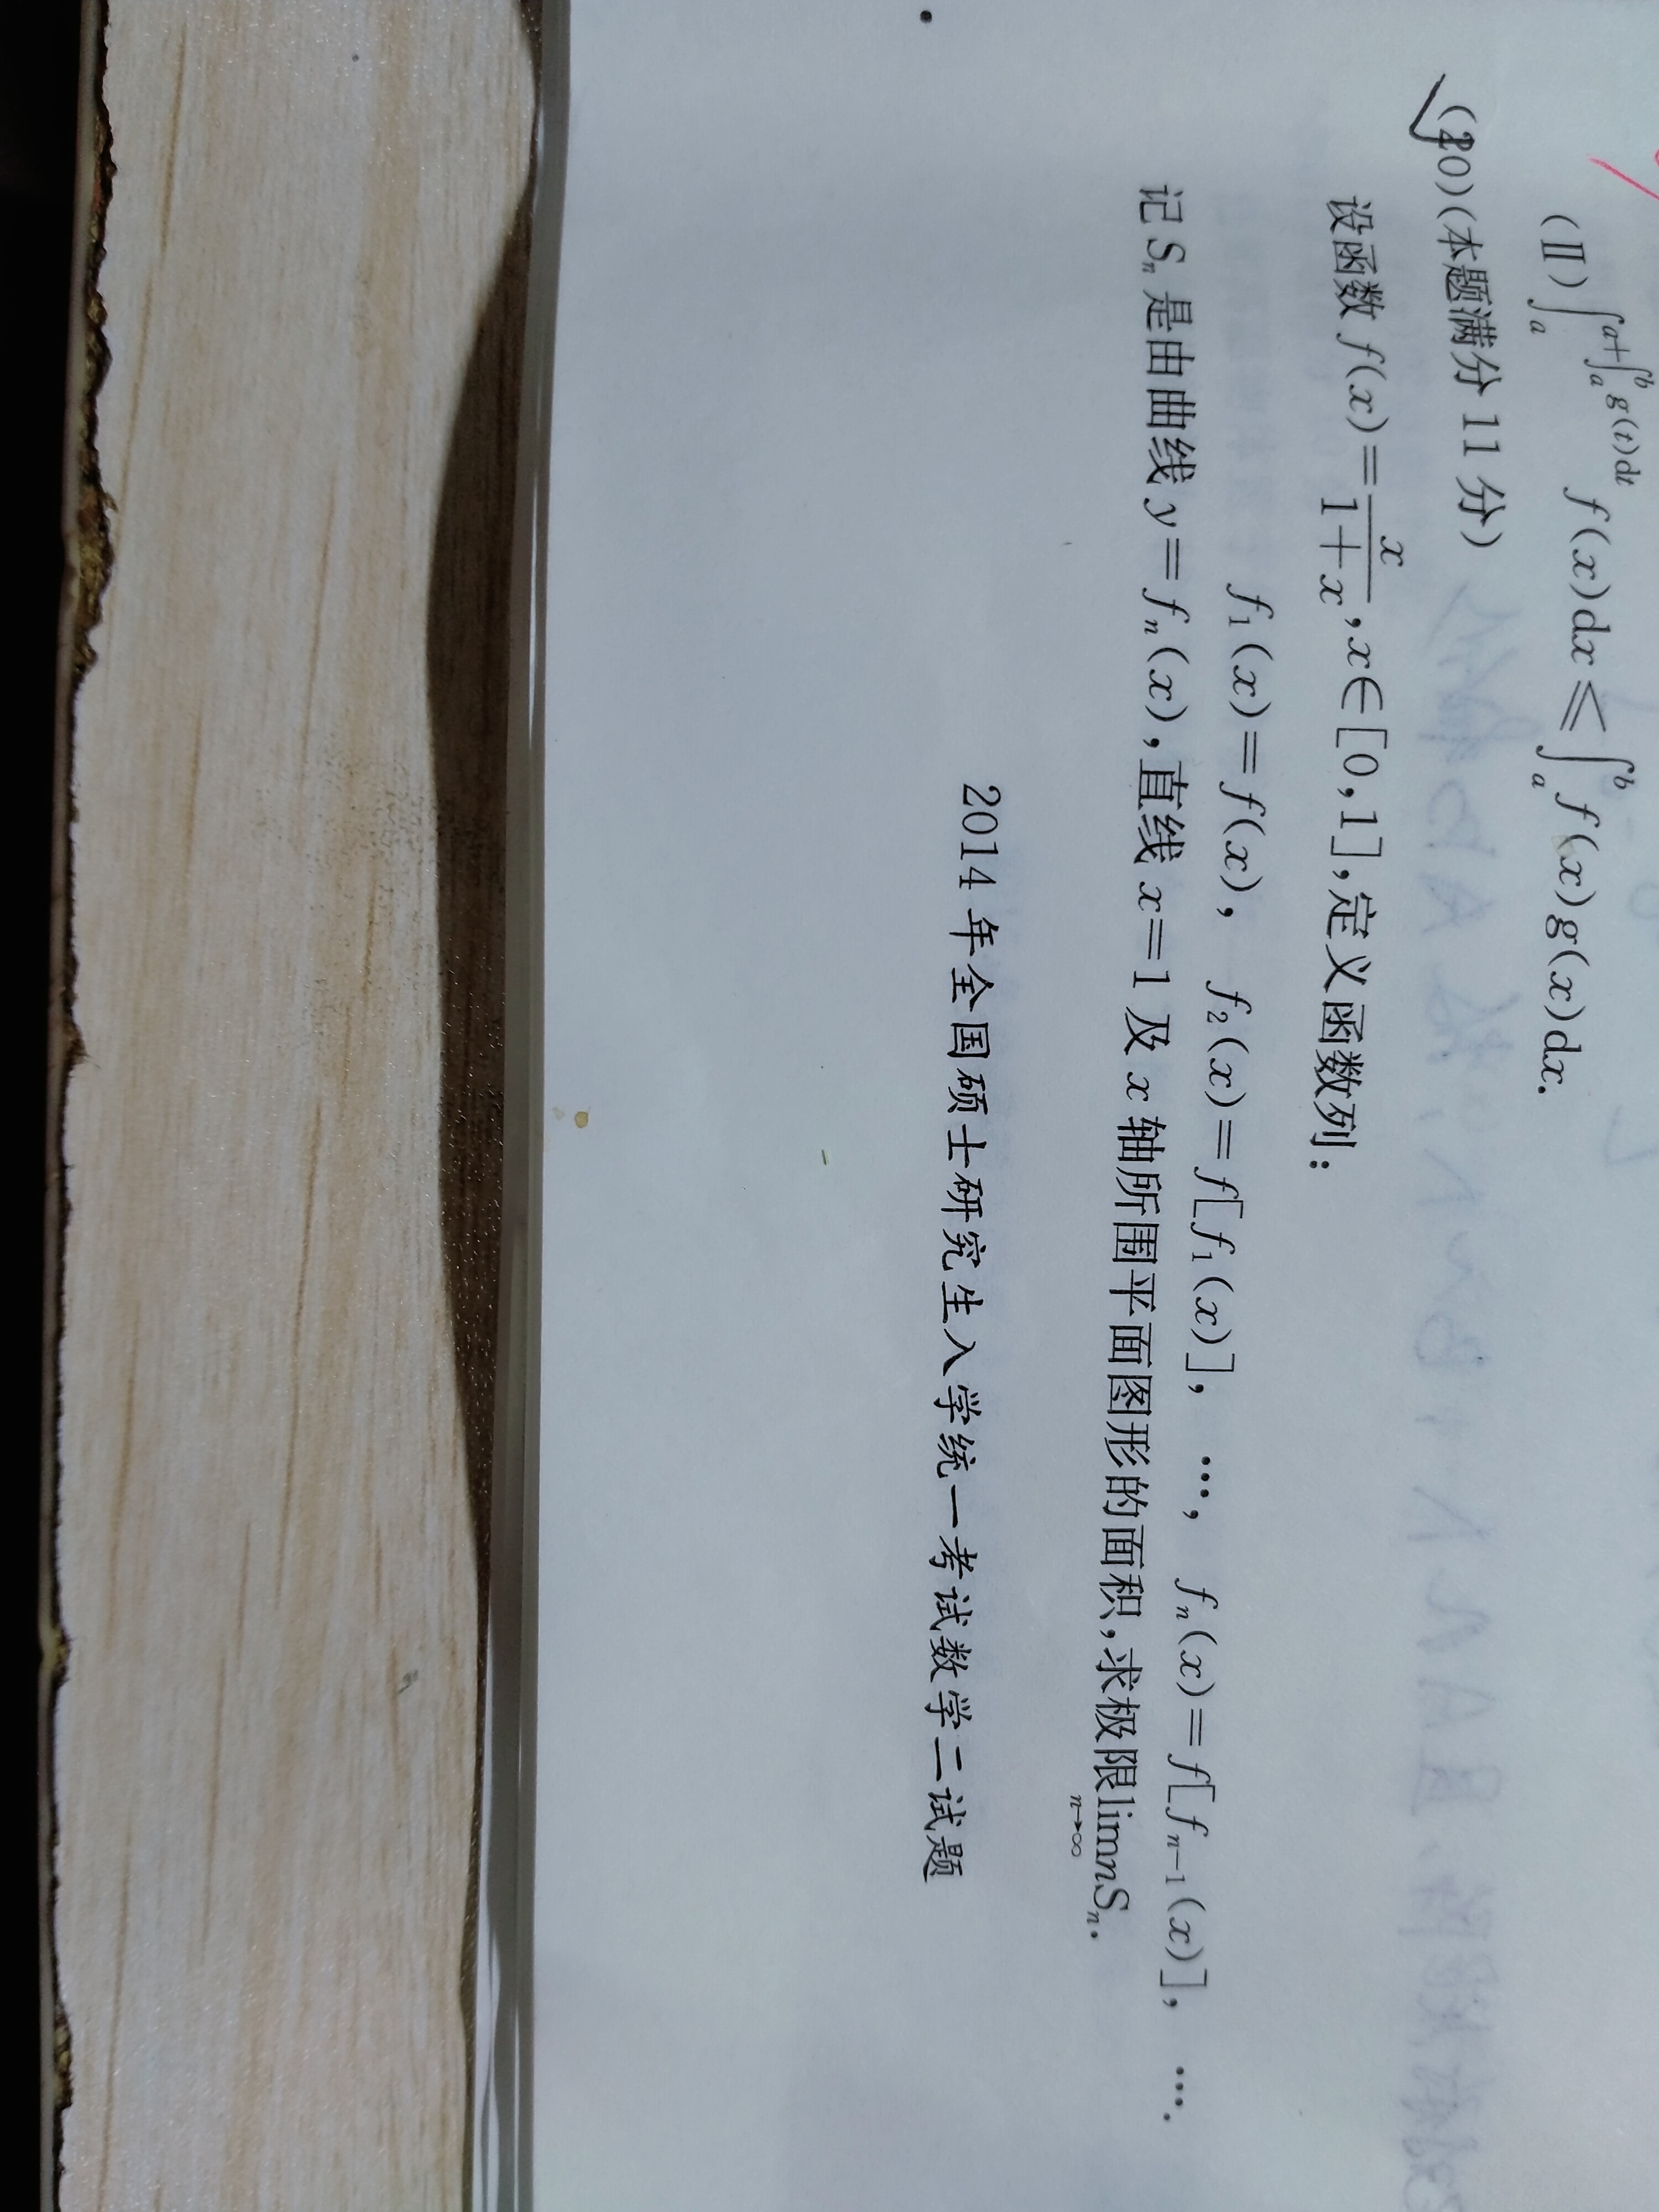 (Ⅱ)∫_a^{a+∫_a^b g(t)dt} f(x)dx≤∫_a^b f(x)g(x)dx.
(20)(本题满分 11 分)
设函数 f(x)=x/(1+x),x∈[0,1],定义函数列:
f₁(x)=f(x), f₂(x)=f[f₁(x)], …, fₙ(x)=f[fₙ₋₁(x)], ….
记 Sₙ 是由曲线 y=fₙ(x),直线 x=1 及 x 轴所围平面图形的面积,求极限 lim_{n→∞} nSₙ.
2014 年全国硕士研究生入学统一考试数学二试题